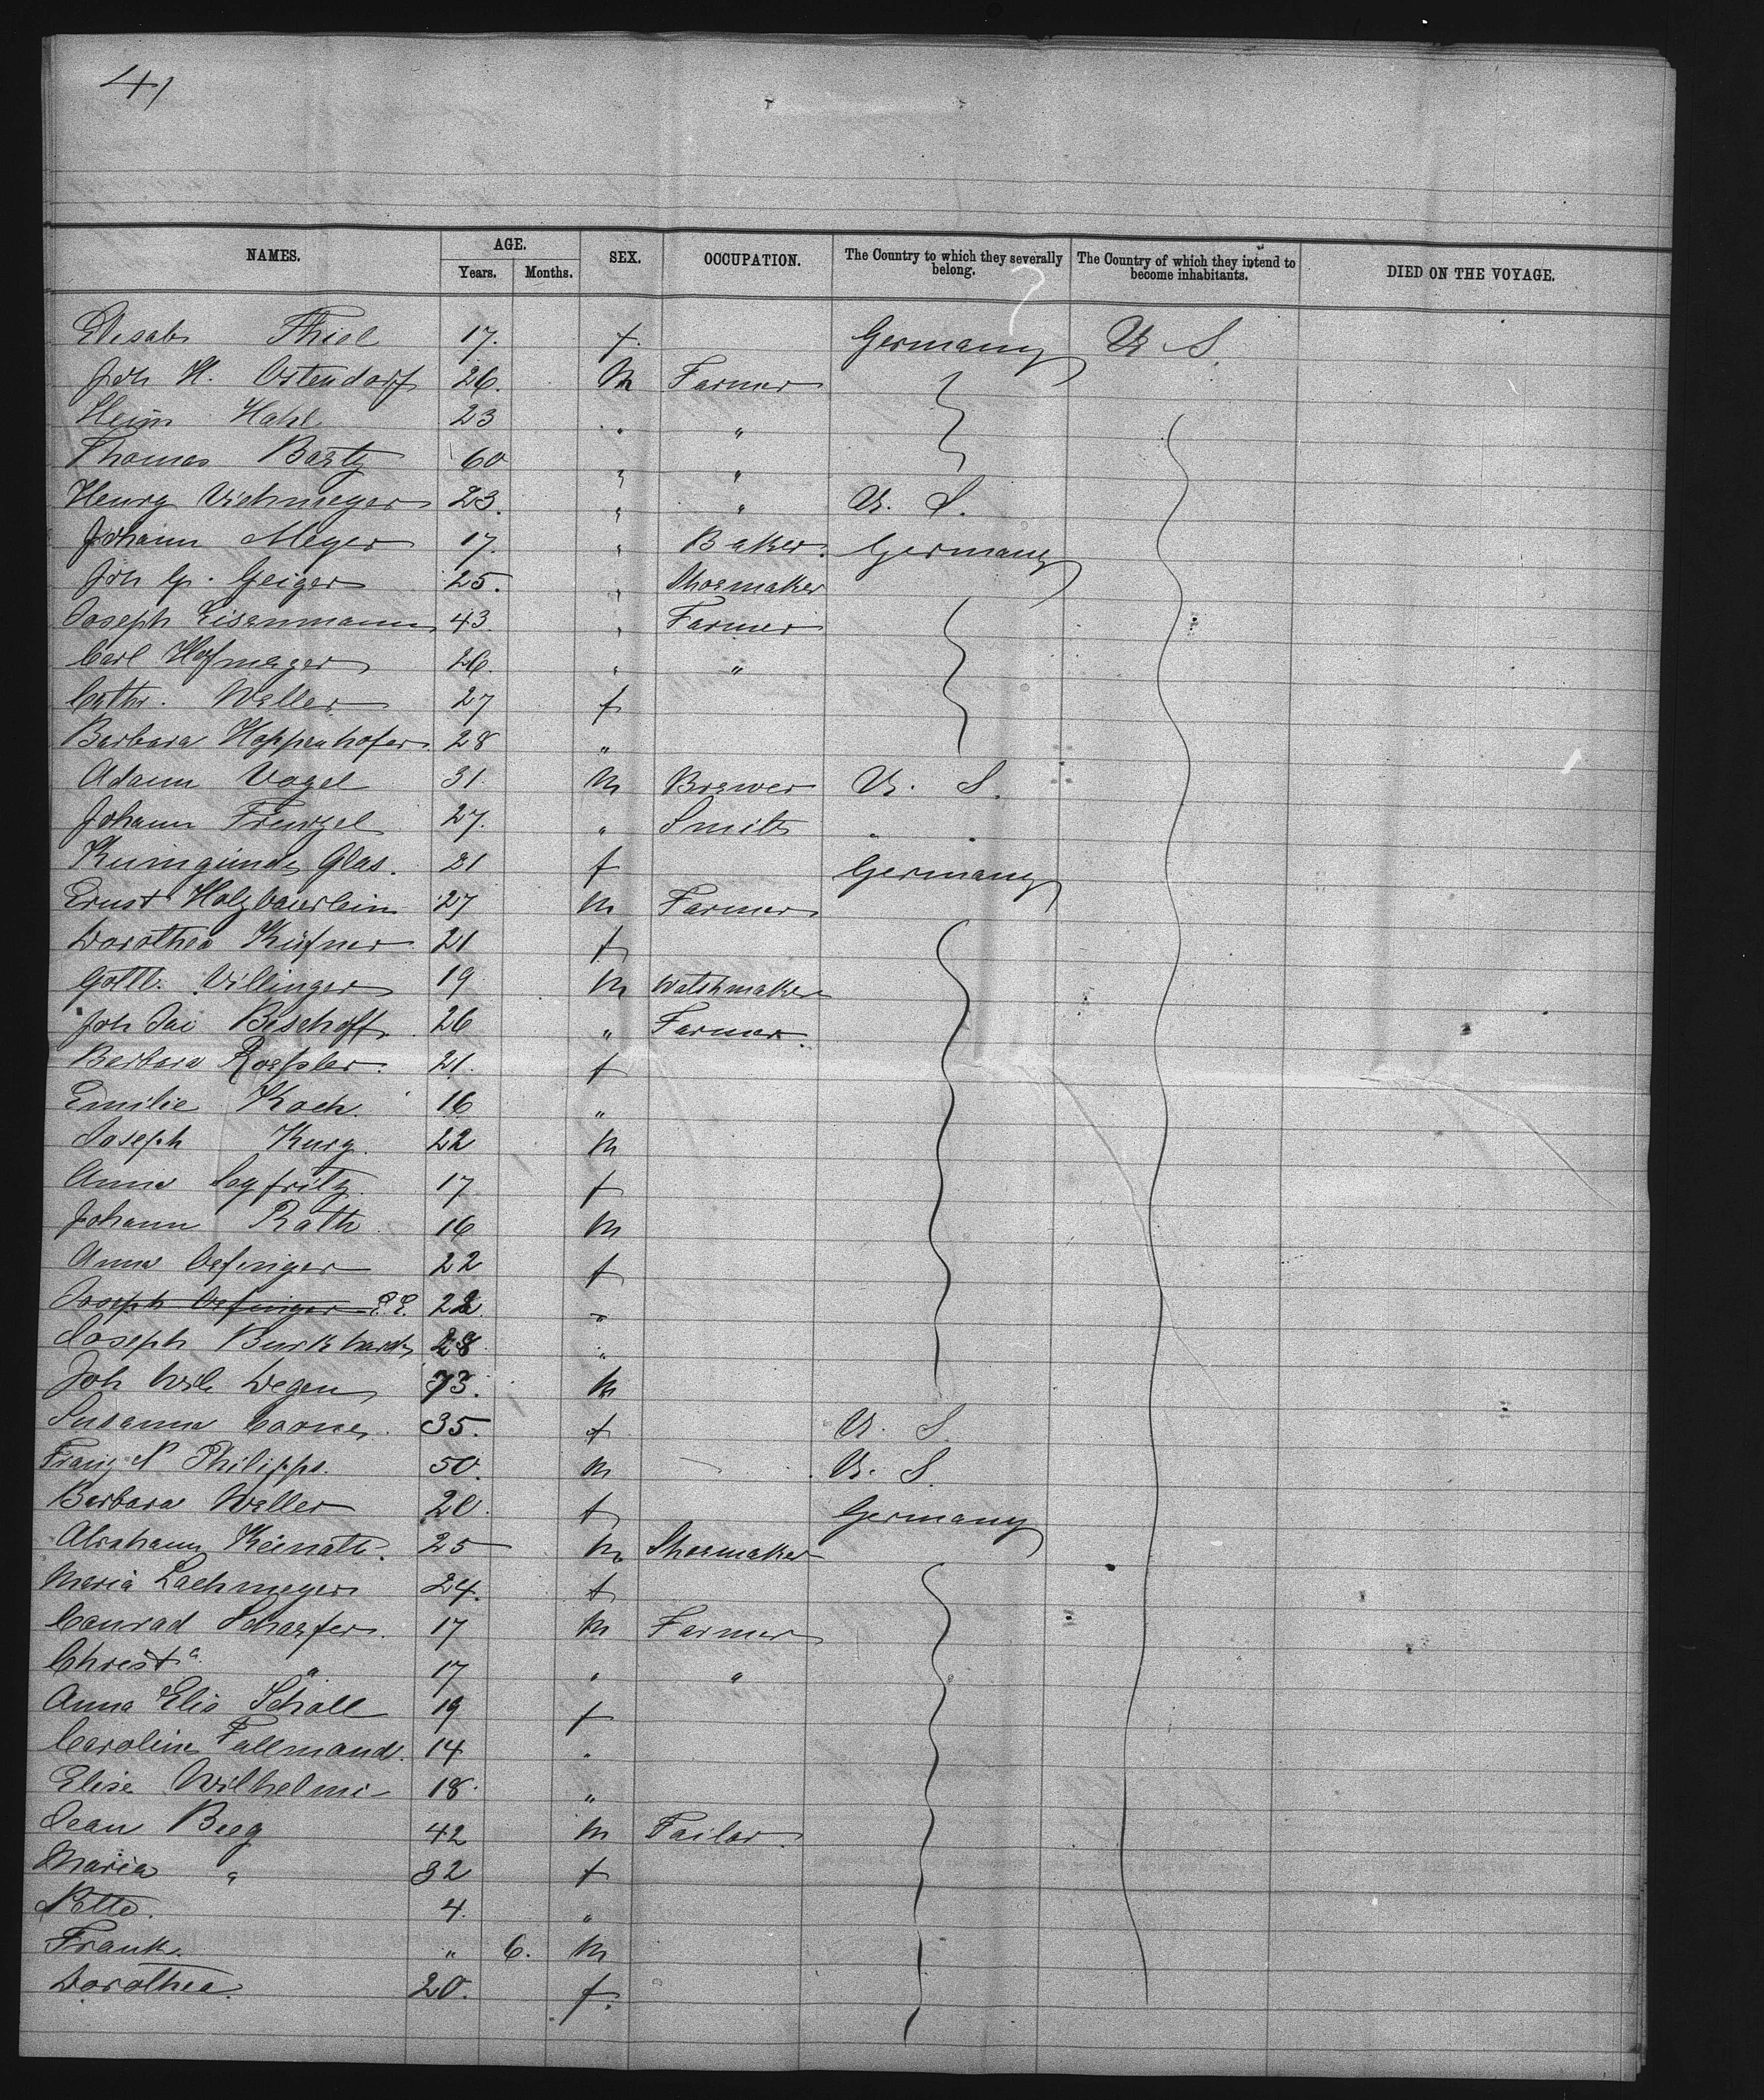 41
NAMES. AGE. Years. Months. SEX. OCCUPATION. The Country to which they severally belong. The Country of which they intend to become inhabitants. DIED ON THE VOYAGE.
Elisab Thiel 17. f. Germany U S.
Joh H. Ostendorf 26. M Farmer
Heinr Hahl 23 " "
Thomas Barty 60 " "
Henry Viehmeyer 23. " " U. S.
Johann Meyer 17. " Baker. Germany
Joh G. Geiger 25. " Shoemaker
Joseph Eisenmann 43. " Farmer
Carl Hofmeyer 26. " "
Cathr. Weller 27 f
Barbara Hoppenhofer 28 "
Adam Vogel 31. M Brewer U. S.
Johann Frenzel 27. " Smith "
Kunigunde Glas. 21 f Germany
Ernst Holzbauerlein 27 M Farmer
Dorothea Küfner 21 f
Gottl. Villinger 19. M Watchmaker
Joh Jac Bischoff 26 " Farmer.
Barbara Roessler. 21. f
Emilie Koch. 16 "
Joseph Kurz. 22 M
Anna Seyfritz. 17 f
Johann Rath 16 M
Anna Oefinger 22 f
Joseph Oefinger E.E. 22. "
Joseph Burkhardt 28. "
Joh Wilh Degen 73. M
Susanna 35. f U. S.
Franz N Philipps. 50. M U. S
Barbara Weller 20. f Germany
Abraham Keinath. 25 M Shoemaker
Maria Lachmeyer 24. f
Conrad Schaefer. 17 M Farmer
Christa " 17 " "
Anna Elis Scholl 19 f
Caroline Fallmand. 14 "
Elise Wilhelmi 18. "
Jean Beeg 42 M Tailor.
Maria " 32 f
Nette. 4. "
Frank. " 6. M
Dorothea. 20. f.